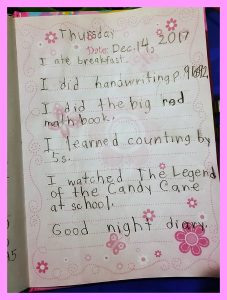 Thursday
Date: Dec. 14, 2017
I ate breakfast.
I did handwriting p.
I did the big red
math book.
I learned counting by
5s.
I watched The Legend
of the Candy Cane
at school.
Good night diary.